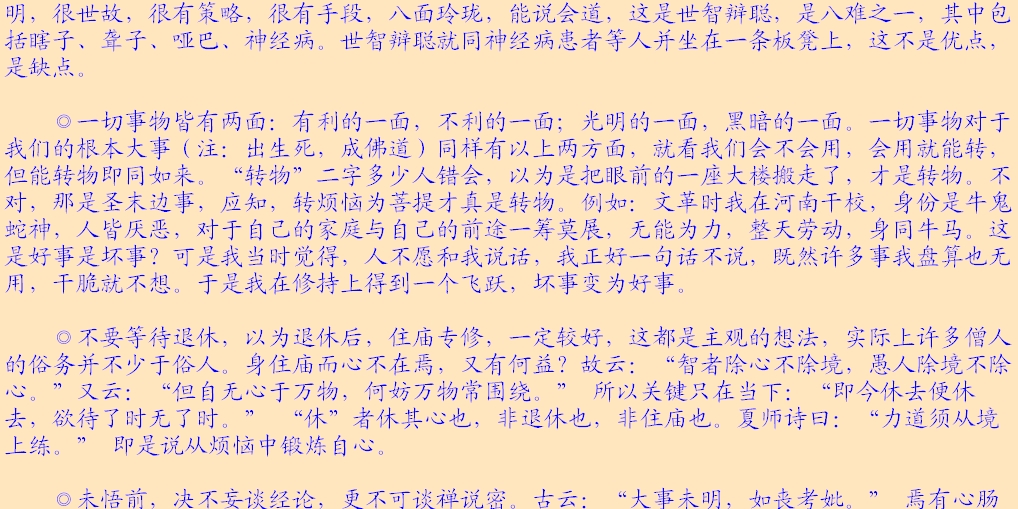 明，很世故，很有策略，很有手段，八面玲珑，能说会道，这是世智辩聪，是八难之一，其中包
括瞎子、聋子、哑巴、神经病。世智辩聪就同神经病患者等人并坐在一条板凳上，这不是优点，
是缺点。
◎一切事物皆有两面：有利的一面，不利的一面；光明的一面，黑暗的一面。一切事物对于
我们的根本大事（注：出生死，成佛道）同样有以上两方面，就看我们会不会用，会用就能转，
但能转物即同如来。“转物”二字多少人错会，以为是把眼前的一座大楼搬走了，才是转物。不
对，那是圣末边事，应知，转烦恼为菩提才真是转物。例如：文革时我在河南干校，身份是牛鬼
蛇神，人皆厌恶，对于自己的家庭与自己的前途一筹莫展，无能为力，整天劳动，身同牛马。这
是好事是坏事？可是我当时觉得，人不愿和我说话，我正好一句话不说，既然许多事我盘算也无
用，干脆就不想。于是我在修持上得到一个飞跃，坏事变为好事。
◎不要等待退休，以为退休后，住庙专修，一定较好，这都是主观的想法，实际上许多僧人
的俗务并不少于俗人。身住庙而心不在焉，又有何益？故云：“智者除心不除境，愚人除境不除
心。”又云：“但自无心于万物，何妨万物常围绕。” 所以关键只在当下：“即今休去便休
去，欲待了时无了时。” “休”者休其心也，非退休也，非住庙也。夏师诗曰：“力道须从境
上练。” 即是说从烦恼中锻炼自心。
◎未悟前，决不妄谈经论，更不可谈禅说密。古云：“大事未明，如丧考妣。” 焉有心肠